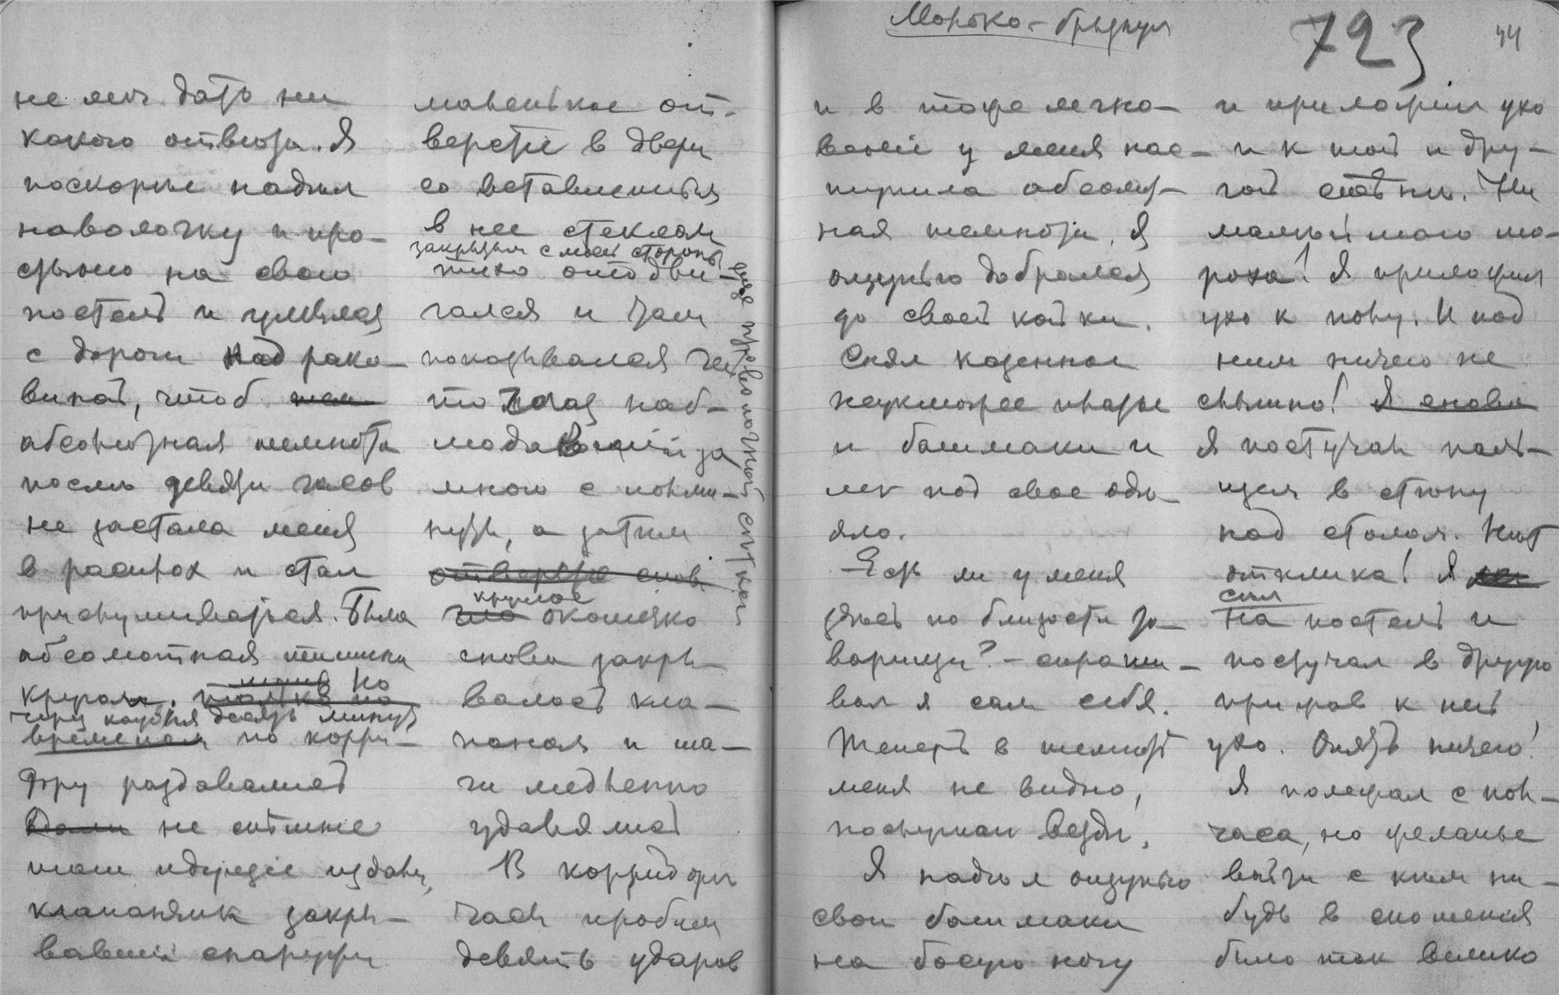 не мог дать ни
какого ответа. Я
поскорее надел
наволочку и про-
стыню на свою
постель и умылся
с дороги над рако-
виной, чтоб
абсолютная темнота
после девяти часов
не застала меня
в расплох и стал
прислушиваться. Была
абсолютная тишина
кругом, но
через каждыя десять минут
временами по корри-
дору раздавались
не спешные
шаги идущие издали,
клапанчик закры-
вавший снаружи
маленькое от-
верстие в двери
со вставленным
в нее стеклом
закрытым с моей стороны еще проволочной сеткой
тихо отодви-
гался и там
показывался чей
то глаз наб-
людавший за
мною с полми-
нуты, а затем
отверстие снов
круглое
окошечко
снова закры-
валось кла-
паном и ша-
ги медленно
удалялись
В корридоре
часы пробили
девять ударов
Морозко-
723
44
и в тоже мгно-
вение у меня нас-
тупила абсолют-
ная темнота. Я
ощупью добрался
до своей койки.
Снял казенное
неуклюжее платье
и башмаки и
лег под свое оде-
яло.
— Есть ли у меня
здесь по близости то-
варищи? — спраши-
вал я сам себя.
Теперь в темноте
меня не видно,
послушаю везде.
Я надел ощупью
свои башмаки
на босую ногу
и приложил ухо
и к той и дру-
гой стене. Ни
малейшего шо-
роха! Я приложил
ухо к полу. И под
ним ничего не
слышно! Я снова
Я постучал паль-
цем в стену
над столом. Нет
отклика! Я
сел
на постель и
постучал в другую
приложив к ней
ухо. Опять ничего!
Я полежал с пол-
часа, но желанье
войти с кем ни-
будь в сношения
было так велико